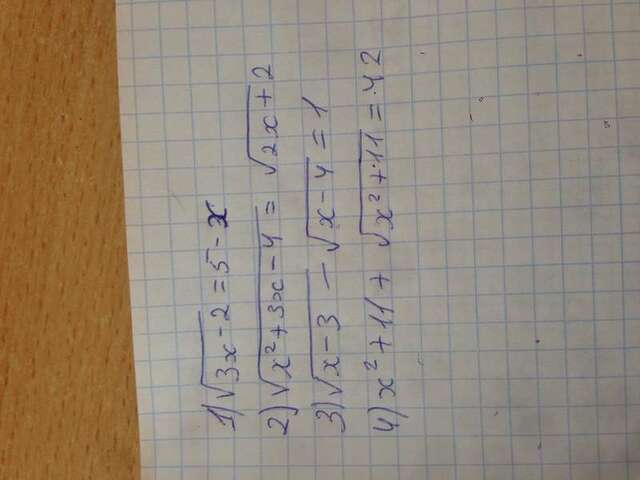 1) √(3x-2) = 5-x
2) √(x²+3x-4) = √(2x+2)
3) √(x-3) - √(x-4) = 1
4) x²+11+ √(x²+11) = 42